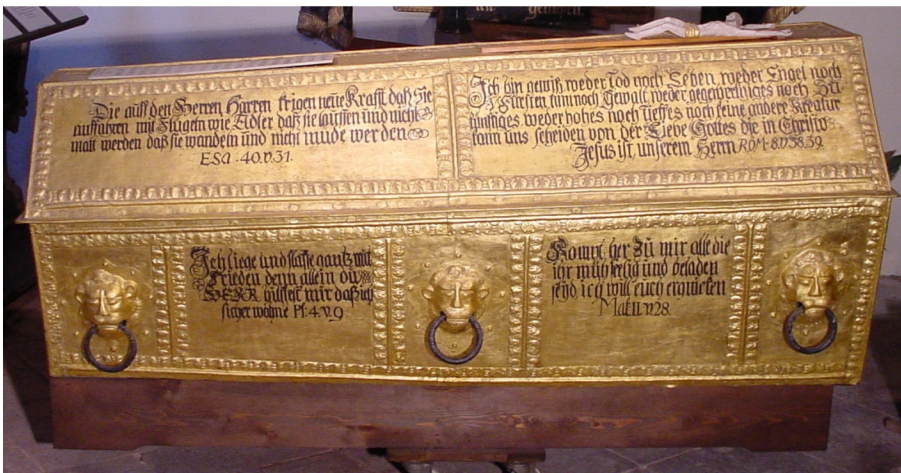 gehofen.
Die auff den Herren Harren krigen neüe Krafft daß Sie
auffahren mit Flügeln wie Adler daß sie lauffen und nicht
matt werden daß sie wandeln und nicht müde werden
ESA .40.v.31.
Ich bin gewiß weder Tod noch Leben weder Engel noch
Fürsten tum noch Gewalt weder gegenwertiges noch Zü
künftiges weder hohes noch tieffes noch keine andere Kreatur
kann uns scheiden von der Liebe Gottes die in Christo
Jesus ist unserem Herrn RÖM. 8.v.38.39.
Ich liege und slaffe gantz mit
Frieden denn allein dü
HERR hilffest mir daß ich
sicher wohne Ps.4.v.9
Kompt her zü mir alle die
ihr mühselig und beladen
seyd ich will euch erquicken
Mat.II.v28.